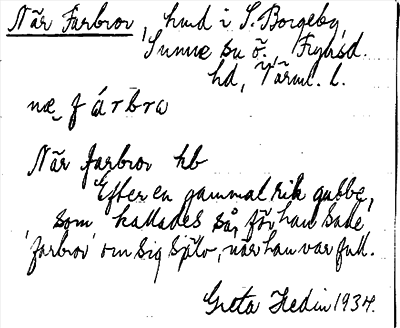 När Farbror, hmd i S. Borgeby,
Sunne su ö. Fryksd.
hd, Värml. l.
næ fárbrω
När farbror hb
Efter en gammal rik gubbe,
som kallades så, för han sade
'farbror' om sig själv, när han var full.
Greta Hedin 1934.